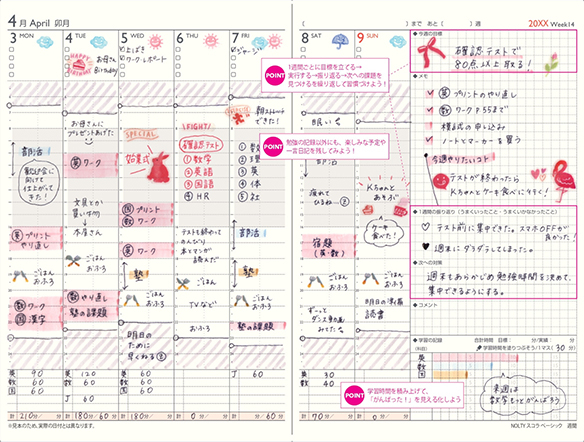 4月 April 卯月
3 MON
4 TUE
5 WED
6 THU
7 FRI
8 SAT
9 SUN
】まで あと【 】週
20XX Week14
HAPPY BIRTHDAY
お母さん
Birthday
うわばき
ワーク・レポート
ジャージ
お母さんに
プレゼントあげた
英 ワーク
SPECIAL
始業式
FIGHT!
確認テスト
① 数学
② 英語
③ 国語
④ HR
① 数
② 理
③ 英
④ 体
⑤ 社
部活
文具とか
買い物
本屋さん
英 プリント
やり直し
ごはん
おふろ
数 ワーク
国 漢字
数 やり直し
塾の課題
国 プリント
数 ワーク
塾
明日の
ために
早くねる
テスト終わって
のんびり
本とマンガ
読んだ
TVなど
おふろ
部活
塾の課題
眠い
疲れて
ひるね
宿題
(英・数)
Kちゃんと
あそぶ
ケーキ
食べた!
明日の準備
読書
POINT
1週間ごとに目標を立てる→
実行する→振り返る→次への課題を
見つけるを繰り返して習慣づけよう!
POINT
勉強の記録以外にも、楽しみな予定や
一言日記を残してみよう!
POINT
学習時間を積み上げて、
「がんばった!」を見える化しよう
今週の目標
確認テストで
80点以上取る!
メモ
英 プリントのやり直し
数 ワーク P.55まで
模試の申し込み
ノートとマーカーを買う
今週やりたいコト
テストが終わったら
Kちゃんとケーキ食べに行く!
1週間の振り返り(うまくいったこと・うまくいかなかったこと)
テスト前に集中できた。スマホOFFが
良かった!
週末にダラダラしてしまった。
次への対策
週末もあらかじめ勉強時間を決めて、
集中できるようにする。
コメント
学習の記録
合計時間 目標: 分/実績: 分
(科目)
学習時間を塗りつぶそう/1マス( 30 分)
英
数
国
来週は
数学もっとがんばろう
英 90
数 60
国 60
英 120
数 60
J 60
数 60
J 60
英 30
数 40
計 210/分
180/分
60/分
0/分
60/分
計 70/分
0/分
※見本のため、実際の日付とは異なります。
NOLTY スコラ ベーシック 週間